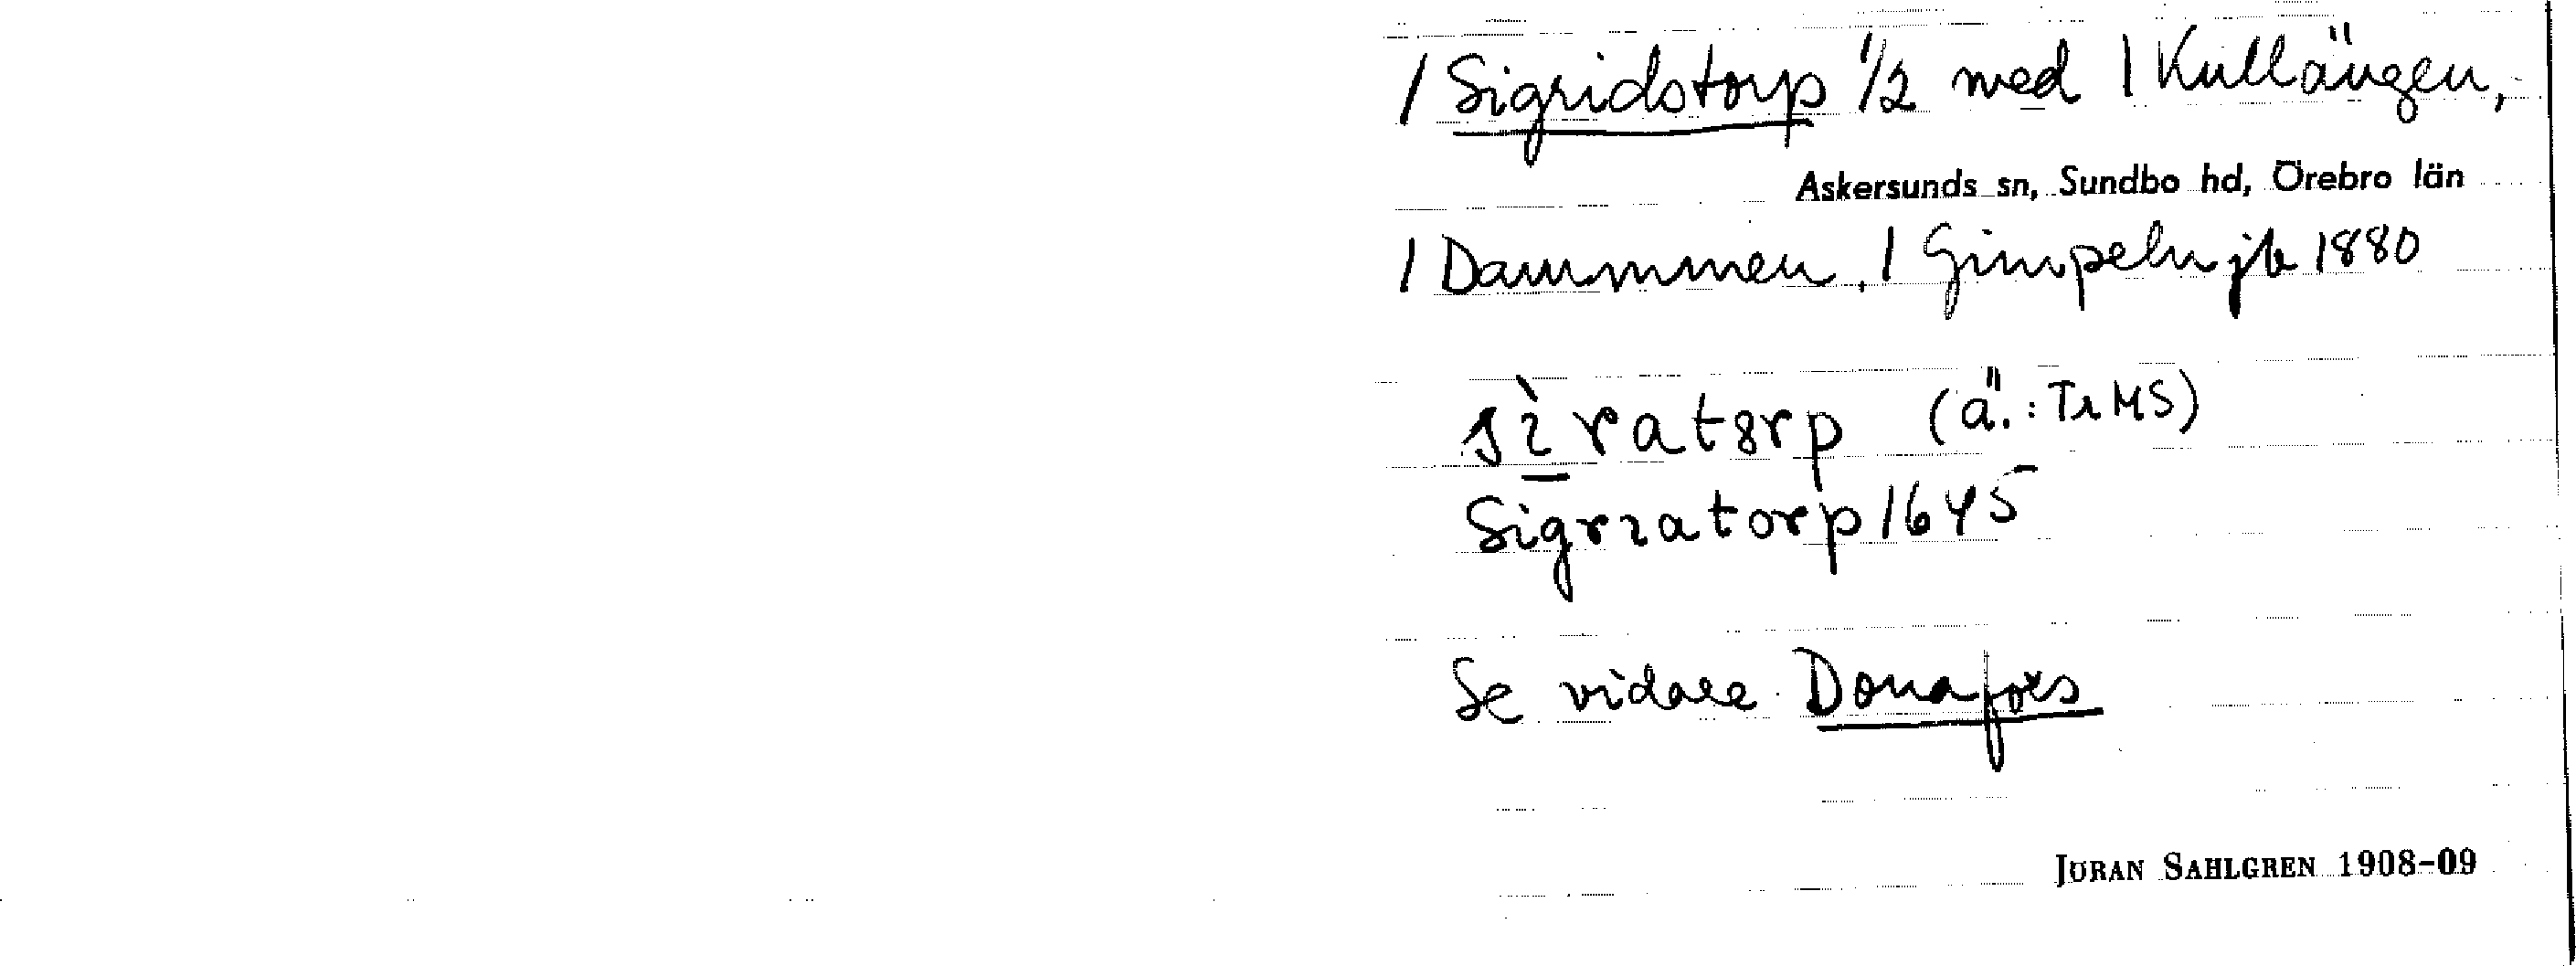 / Sigridstorp 1/2 med / Kullängen,
Askersunds sn, Sundbo hd, Örebro län
/ Dammmen, / Gimpeln jb 1880
sìratorp (ä.: Tr MS)
Sigrzatorp 1645
Se vidare Donafors
JÖRAN SAHLGREN 1908-09